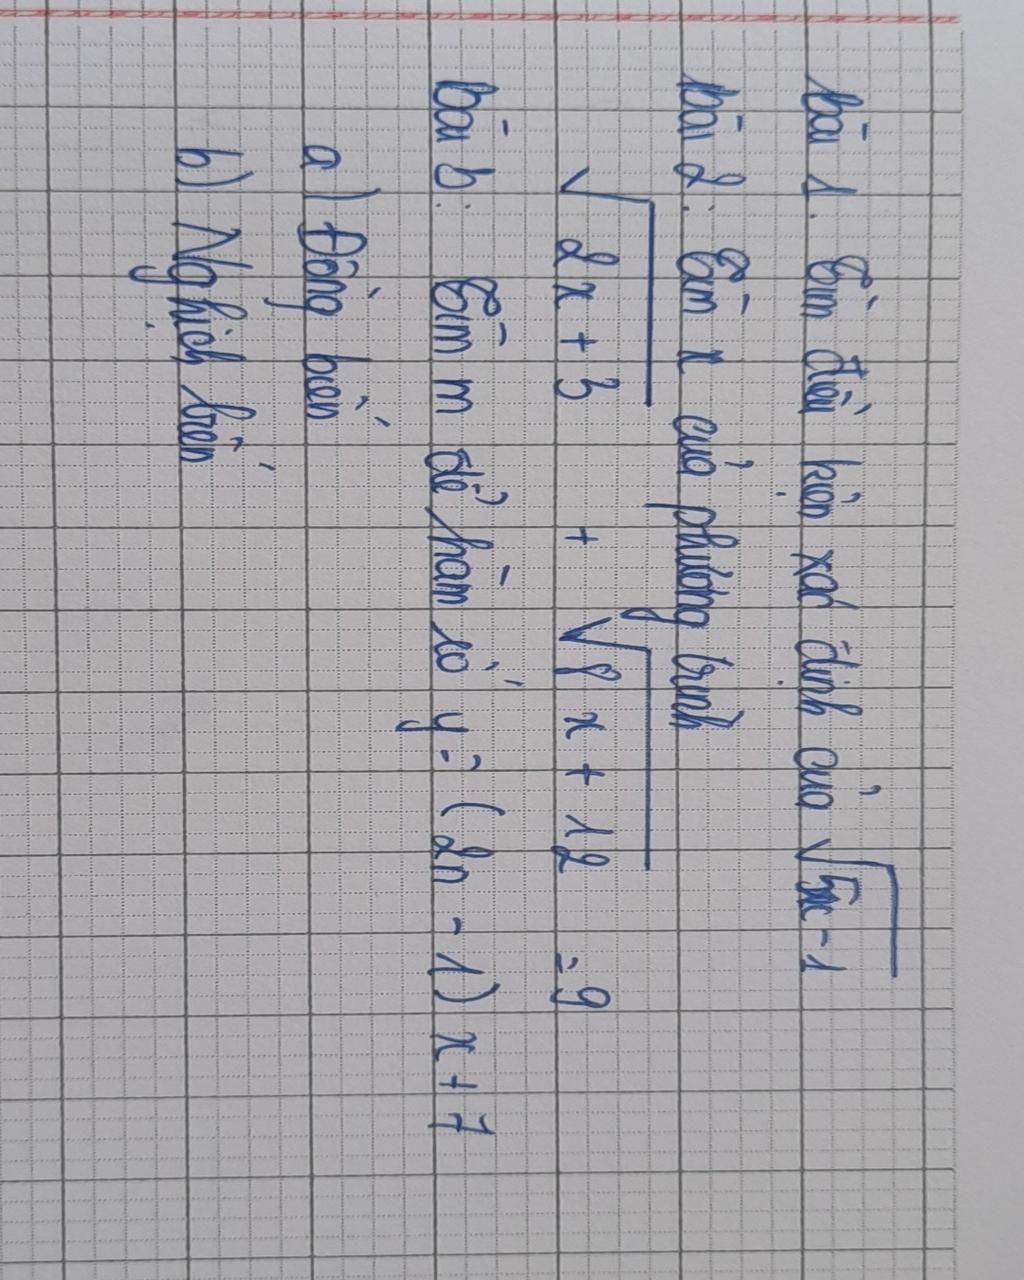 bài 1. Tìm điều kiện xác định của √5x-1
bài 2: Tìm x của phương trình
√2x + 3 + √8x + 12 = 9
bài 3: Tìm m để hàm số y = (2n - 1) x + 7
a) Đồng biến
b) Nghịch biến